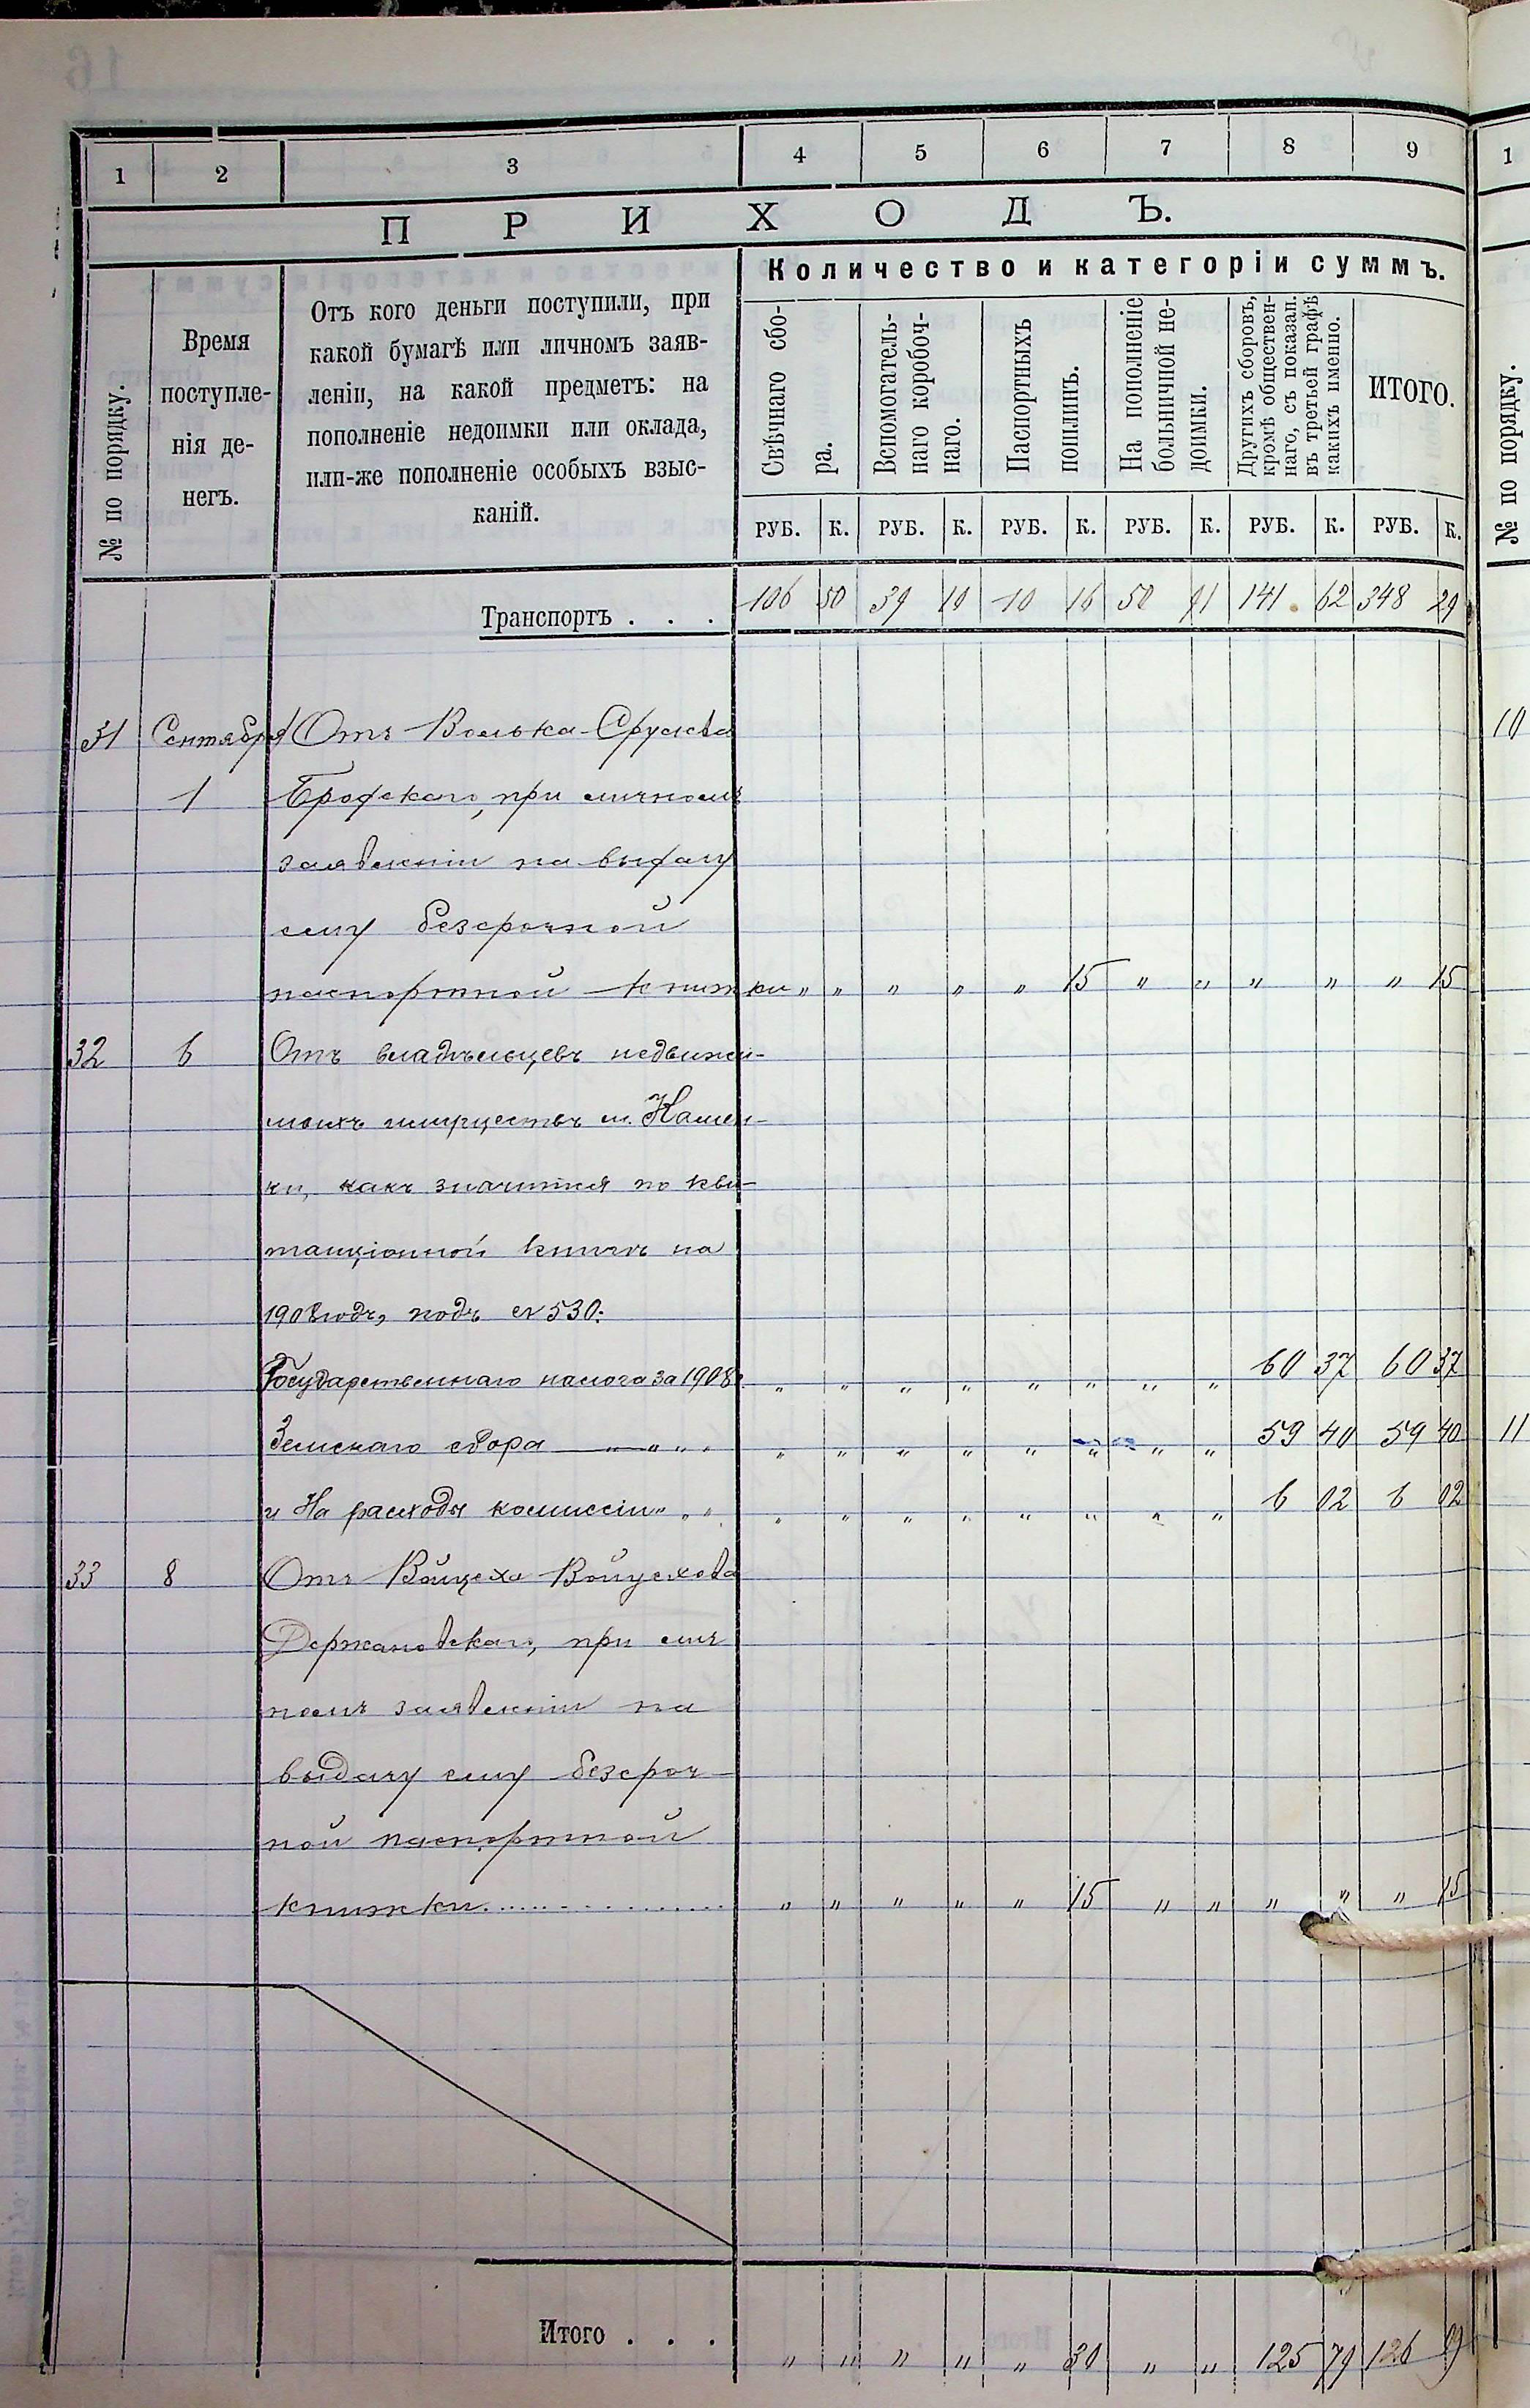 1 2 3 4 5 6 7 8 9
ПРИХОДЪ.
№ по порядку.
Время
поступле-
нія де-
негъ.
Отъ кого деньги поступили, при
какой бумагѣ или личномъ заяв-
леніи, на какой предметъ: на
пополненіе недоимки или оклада,
или-же пополненіе особыхъ взыс-
каній.
Количество и категоріи суммъ.
Свѣчнаго сбо-
ра.
Вспомогатель-
наго коробоч-
наго.
Паспортныхъ
пошлинъ.
На пополненіе
больничной не-
доимки.
Другихъ сборовъ,
кромѣ обществен-
наго, съ показан.
въ третьей графѣ
какихъ именно.
ИТОГО.
РУБ. К. РУБ. К. РУБ. К. РУБ. К. РУБ. К. РУБ. К.
Транспортъ . . . 106 50 39 10 10 16 50 91 141 62 348 29
31 Сентября Отъ Волька Срулева
1 Бродскаго, при личномъ
заявленіи на выдачу
ему безсрочной
паспортной книжки " " " " " 15 " " " " " 15
32 6 Отъ владѣльцевъ недвижи-
мыхъ имуществъ м.
ки, какъ значится по кви-
танціонной книгѣ на
1908 годъ, подъ № 530:
Государственнаго налога за 1908 " " " " " " " " 60 37 60 37
Земскаго сбора — " " " " " " " " " " " 59 40 59 40
и На расходы комиссіи " " " " " " " " " " " 6 02 6 02
33 8 Отъ Войцеха Войцехова
Держановскаго, при лич
номъ заявленіи на
выдачу ему безсроч-
ной паспортной
книжки " " " " " 15 " " " " " 15
Итого . . . " " " " " 30 " " 125 79 126 09
1
№ по порядку.
10
11